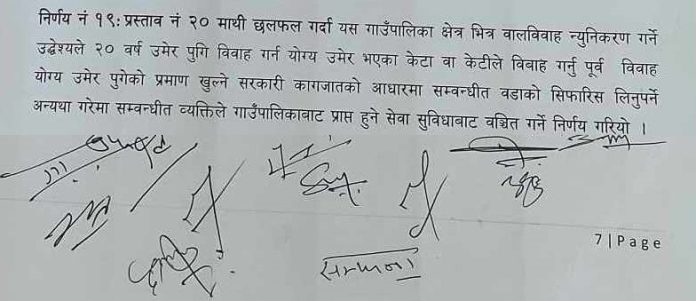 निर्णय नं १९: प्रस्ताव नं २० माथी छलफल गर्दा यस गाउँपालिका क्षेत्र भित्र वालविवाह न्युनिकरण गर्ने
उद्धेश्यले २० वर्ष उमेर पुगि विवाह गर्न योग्य उमेर भएका केटा वा केटीले विवाह गर्नु पूर्व विवाह
योग्य उमेर पुगेको प्रमाण खुल्ने सरकारी कागजातको आधारमा सम्वन्धीत वडाको सिफारिस लिनुपर्ने
अन्यथा गरेमा सम्वन्धीत व्यक्तिले गाउँपालिकावाट प्राप्त हुने सेवा सुविधावाट वञ्चित गर्ने निर्णय गरियो ।
7 | Page